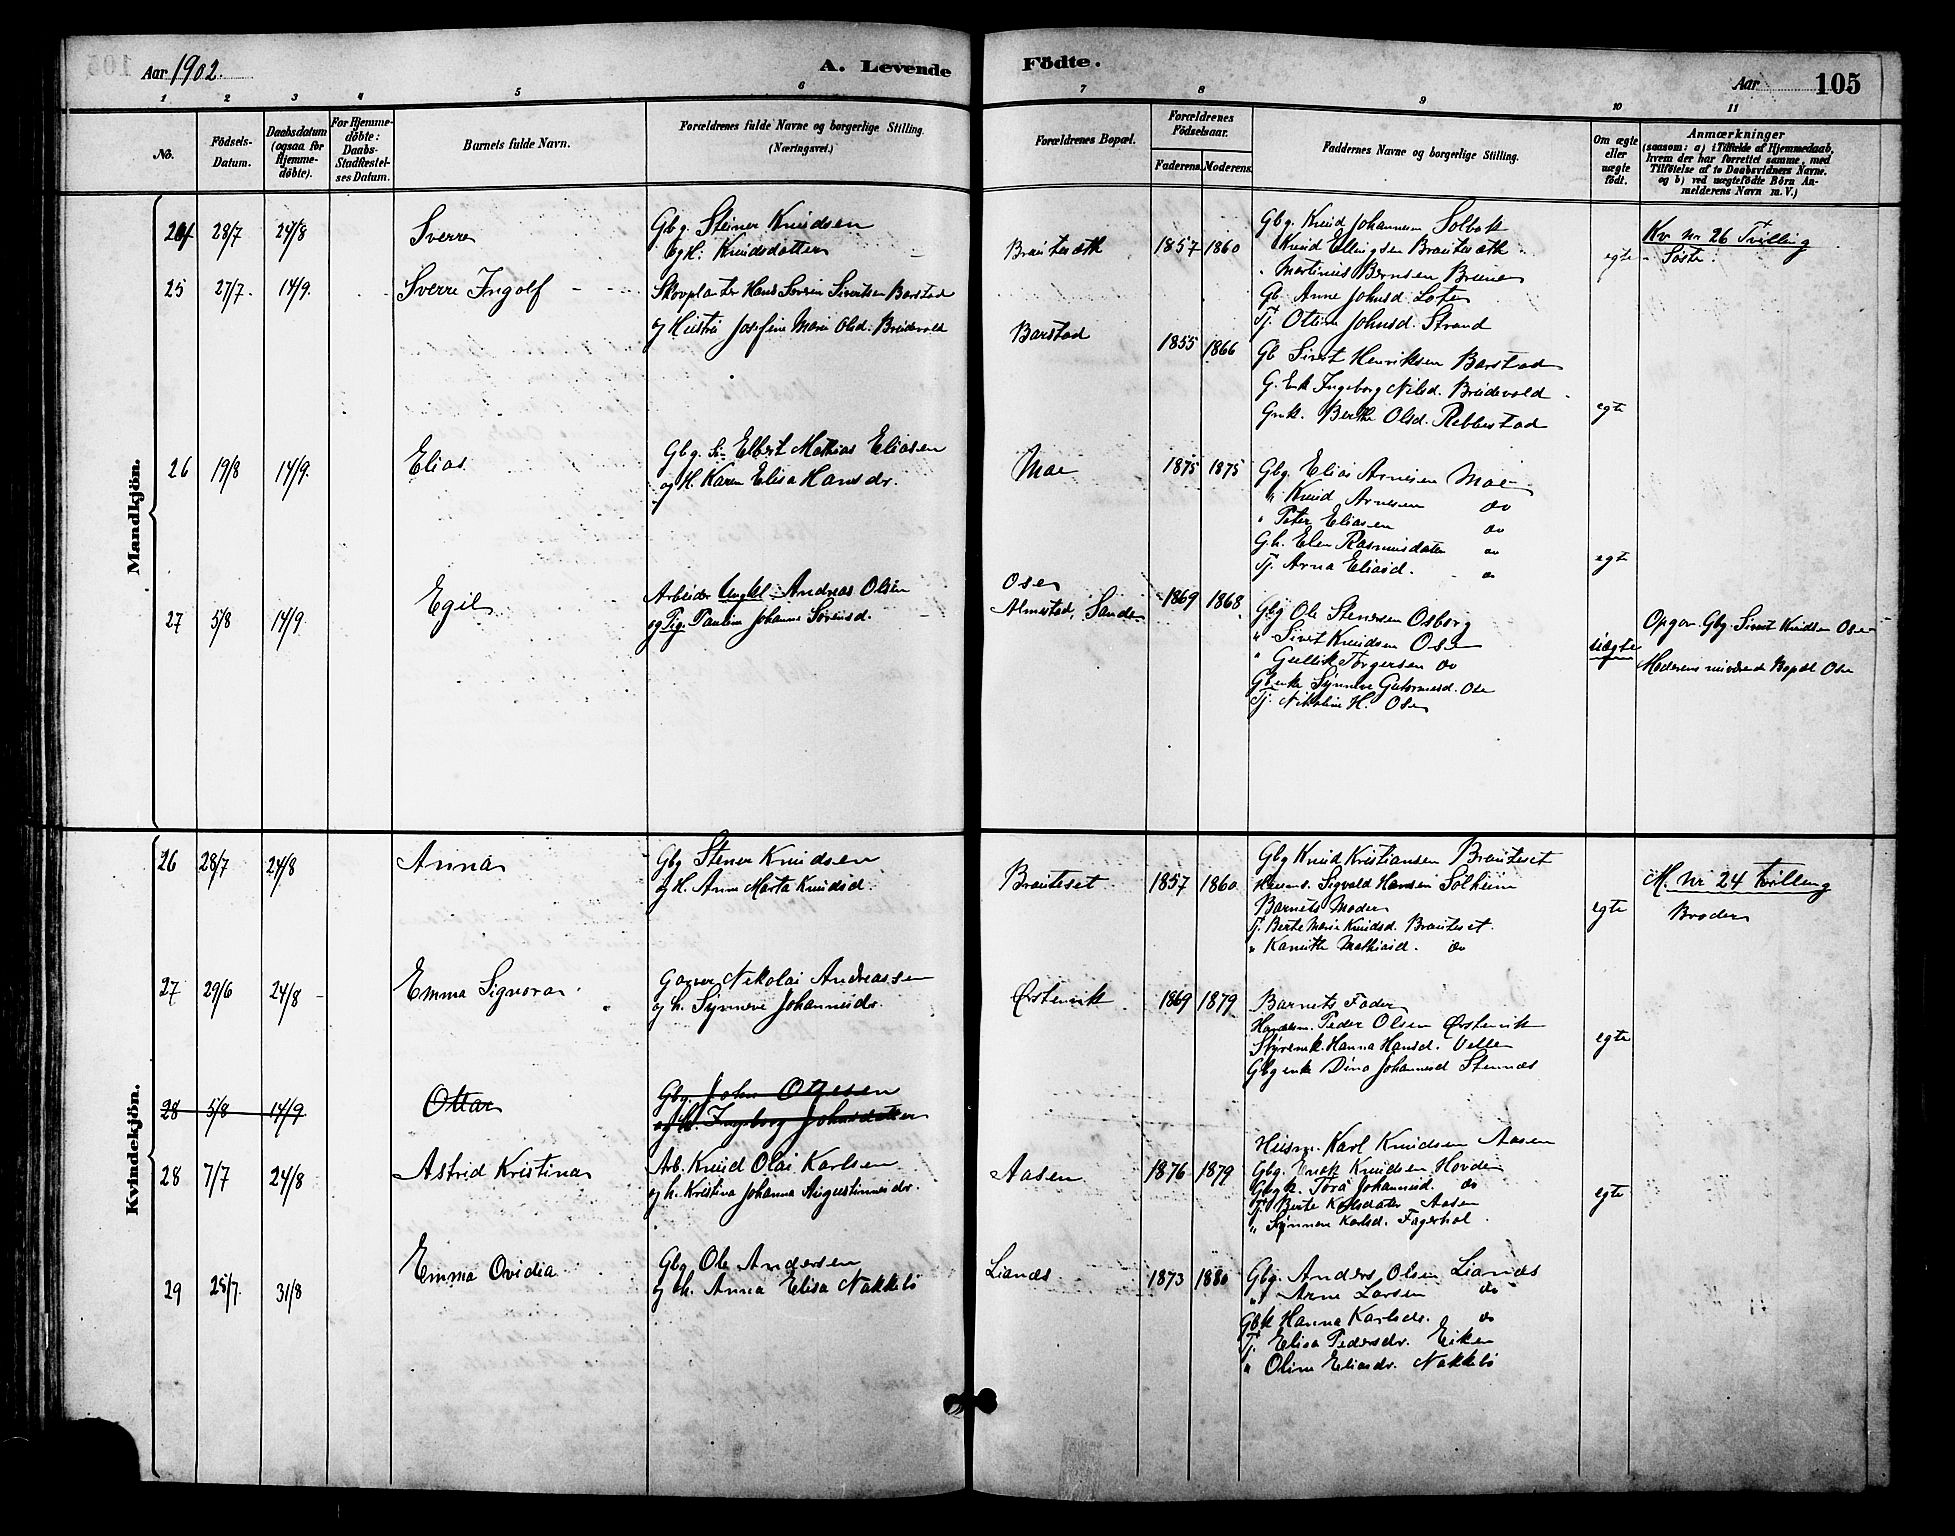 Aar 1902.
A. Levende Födte.
Aar 105
1 2 3 4 5 6 7 8 9 10 11
No.
Födsels-Datum.
Daabsdatum (ogsaa for Hjemme-döbte).
For Hjemme-döbte: Daabs-Stadfæstel-ses Datum.
Barnets fulde Navn.
Forældrenes fulde Navne og borgerlige Stilling.
(Næringsvei.)
Forældrenes Bopæl.
Forældrenes Födselsaar.
Faderens. Moderens.
Faddernes Navne og borgerlige Stilling.
Om ægte eller uægte födt.
Anmærkninger
(saasom: a) i Tilfælde af Hjemmedaab,
hvem der har forrettet samme, med
Tilföielse af to Daabsvidners Navne.
og b) ved uægtefödte Börn An-
melderens Navn m. V.)
Mandkjön.
24 28/7 24/8 Sverre
Gbg. Steiner Knudsen
og H. Knudsdatter
Brauteseth 1857 1860
Gbg. Knud Johannesen Solbak
" Knud Ellingsen Brauteseth
" Martinus Berntsen Brune
Gb. Anne Johnsd. Lote
Tj. Oline Johnsd. Strand
egte
Kv. nr 26 Tvilling
Söster.
25 27/7. 14/9. Sverre Ingolf
Skovplanter Hans Severin Sivertsen Barstad
og Hustru Josefine Marie Olsd. Breidevold
Barstad 1855 1866
Gb Sivert Henriksen Barstad
G. Enk Ingeborg Nilsd. Breidevold
Gmk. Berthe Olsd. Rebbestad
egte
26 19/8 14/9. Elias
Gbg. S. Elbert Mathias Eliasen
og H. Karen Elisa Hansdr.
Moe 1875 1875
Gbg. Elias Arnesen Moe
" Knud Arnesen do
" Peter Eliasen do
G.h. Elen Rasmusdatter do
Tj. Arna Eliasd. do
egte
27 5/8 14/9 Egil
Arbeider Ungkl. Andreas Olsen
og Pig. Pauline Johanne Sörensd.
Ose
Almestad, Sande 1869 1868
Gbg Ole Stenersen Osborg
" Sivert Knudsen Ose
" Gullik Torgersen do
Gbenke Synneve Guttormsd. Ose
Tj. Nikoline H. Ose
uægte
Opgav. Gbg. Sivert Knudsen Ose
Moderens nuværende Bopæl Ose
Kvindekjön.
26 28/7 24/8 Anna
Gbg Stener Knudsen
og H. Anne Marta Knudsd.
Brauteset 1857 1860
Gbg Knud Kristiansen Brauteset
Husms. Sigvald Hansen Solheim
Barnets Moder
Tj. Berte Marie Knudsd. Brauteset
" Kanutte Mathiasd. do
egte
M. nr 24 tvilling
Broder
27 29/6 24/8 Emma Signora
Garver Nikolai Andreassen
og h. Synneve Johannesdr.
Ørstenvik 1869 1879
Barnets Fader
Handelsm. Peder Olsen Ørstenvik
Styrmk. Hanna Hansd. Velle
Gbg enke Dina Johannesd Stennæs
egte
28 5/8 14/9 Ottar
Gbg. John Ottesen
og h. Ingeborg Johnsdatter
28 7/7 24/8 Astrid Kristina
Arb. Knud Olai Karlsen
og h. Kristina Johanna Augustinusdr.
Aasen 1876 1879
Husm. Karl Knudsen Aasen
Gbg. Enok Knudsen Hovde
Gbgk. Tora Johannesd. do
Tj. Berte Karlsdatter Aasen
" Synneve Karlsd. Fagerhol
egte
29 25/7. 31/8 Emma Ovidia
Gbg Ole Andersen
og h. Anna Elisa Nakkelö
Lianæs 1873 1880
Gbg. Anders Olsen Lianæs
" Arne Larsen do
Gbk Hanna Karlsdr. do
Tj. Elisa Pedersdr. Eiken
" Oline Eliasdr. Nakkelö